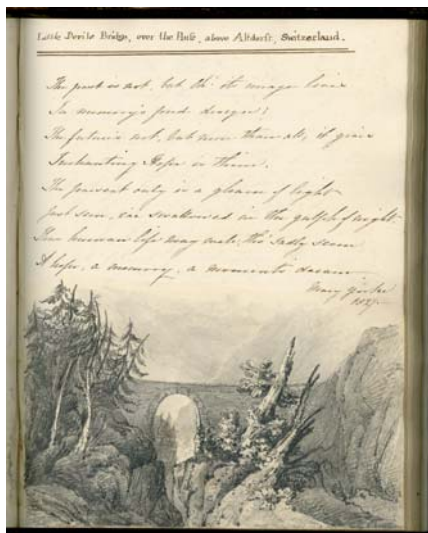 Little Devils Bridge, over the Russ, above Altdorft, Switzerland.
The past is not, but its image
In memory's fond
The future's not, but more than all, it gives
Enchanting Hope is
The present only is a gleam of light
Just seen, ere swallowed in the gulph of night
Thus human life may sadly seem
A hope, a memory, a moments dream
Mary